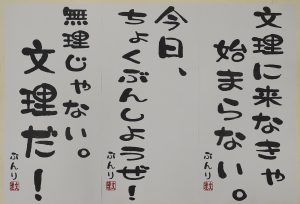 文理に来なきゃ
始まらない。
ぶんり
今日、
ちょくぶんしようぜ！
ぶんり
無理じゃない。
文理だ！
ぶんり